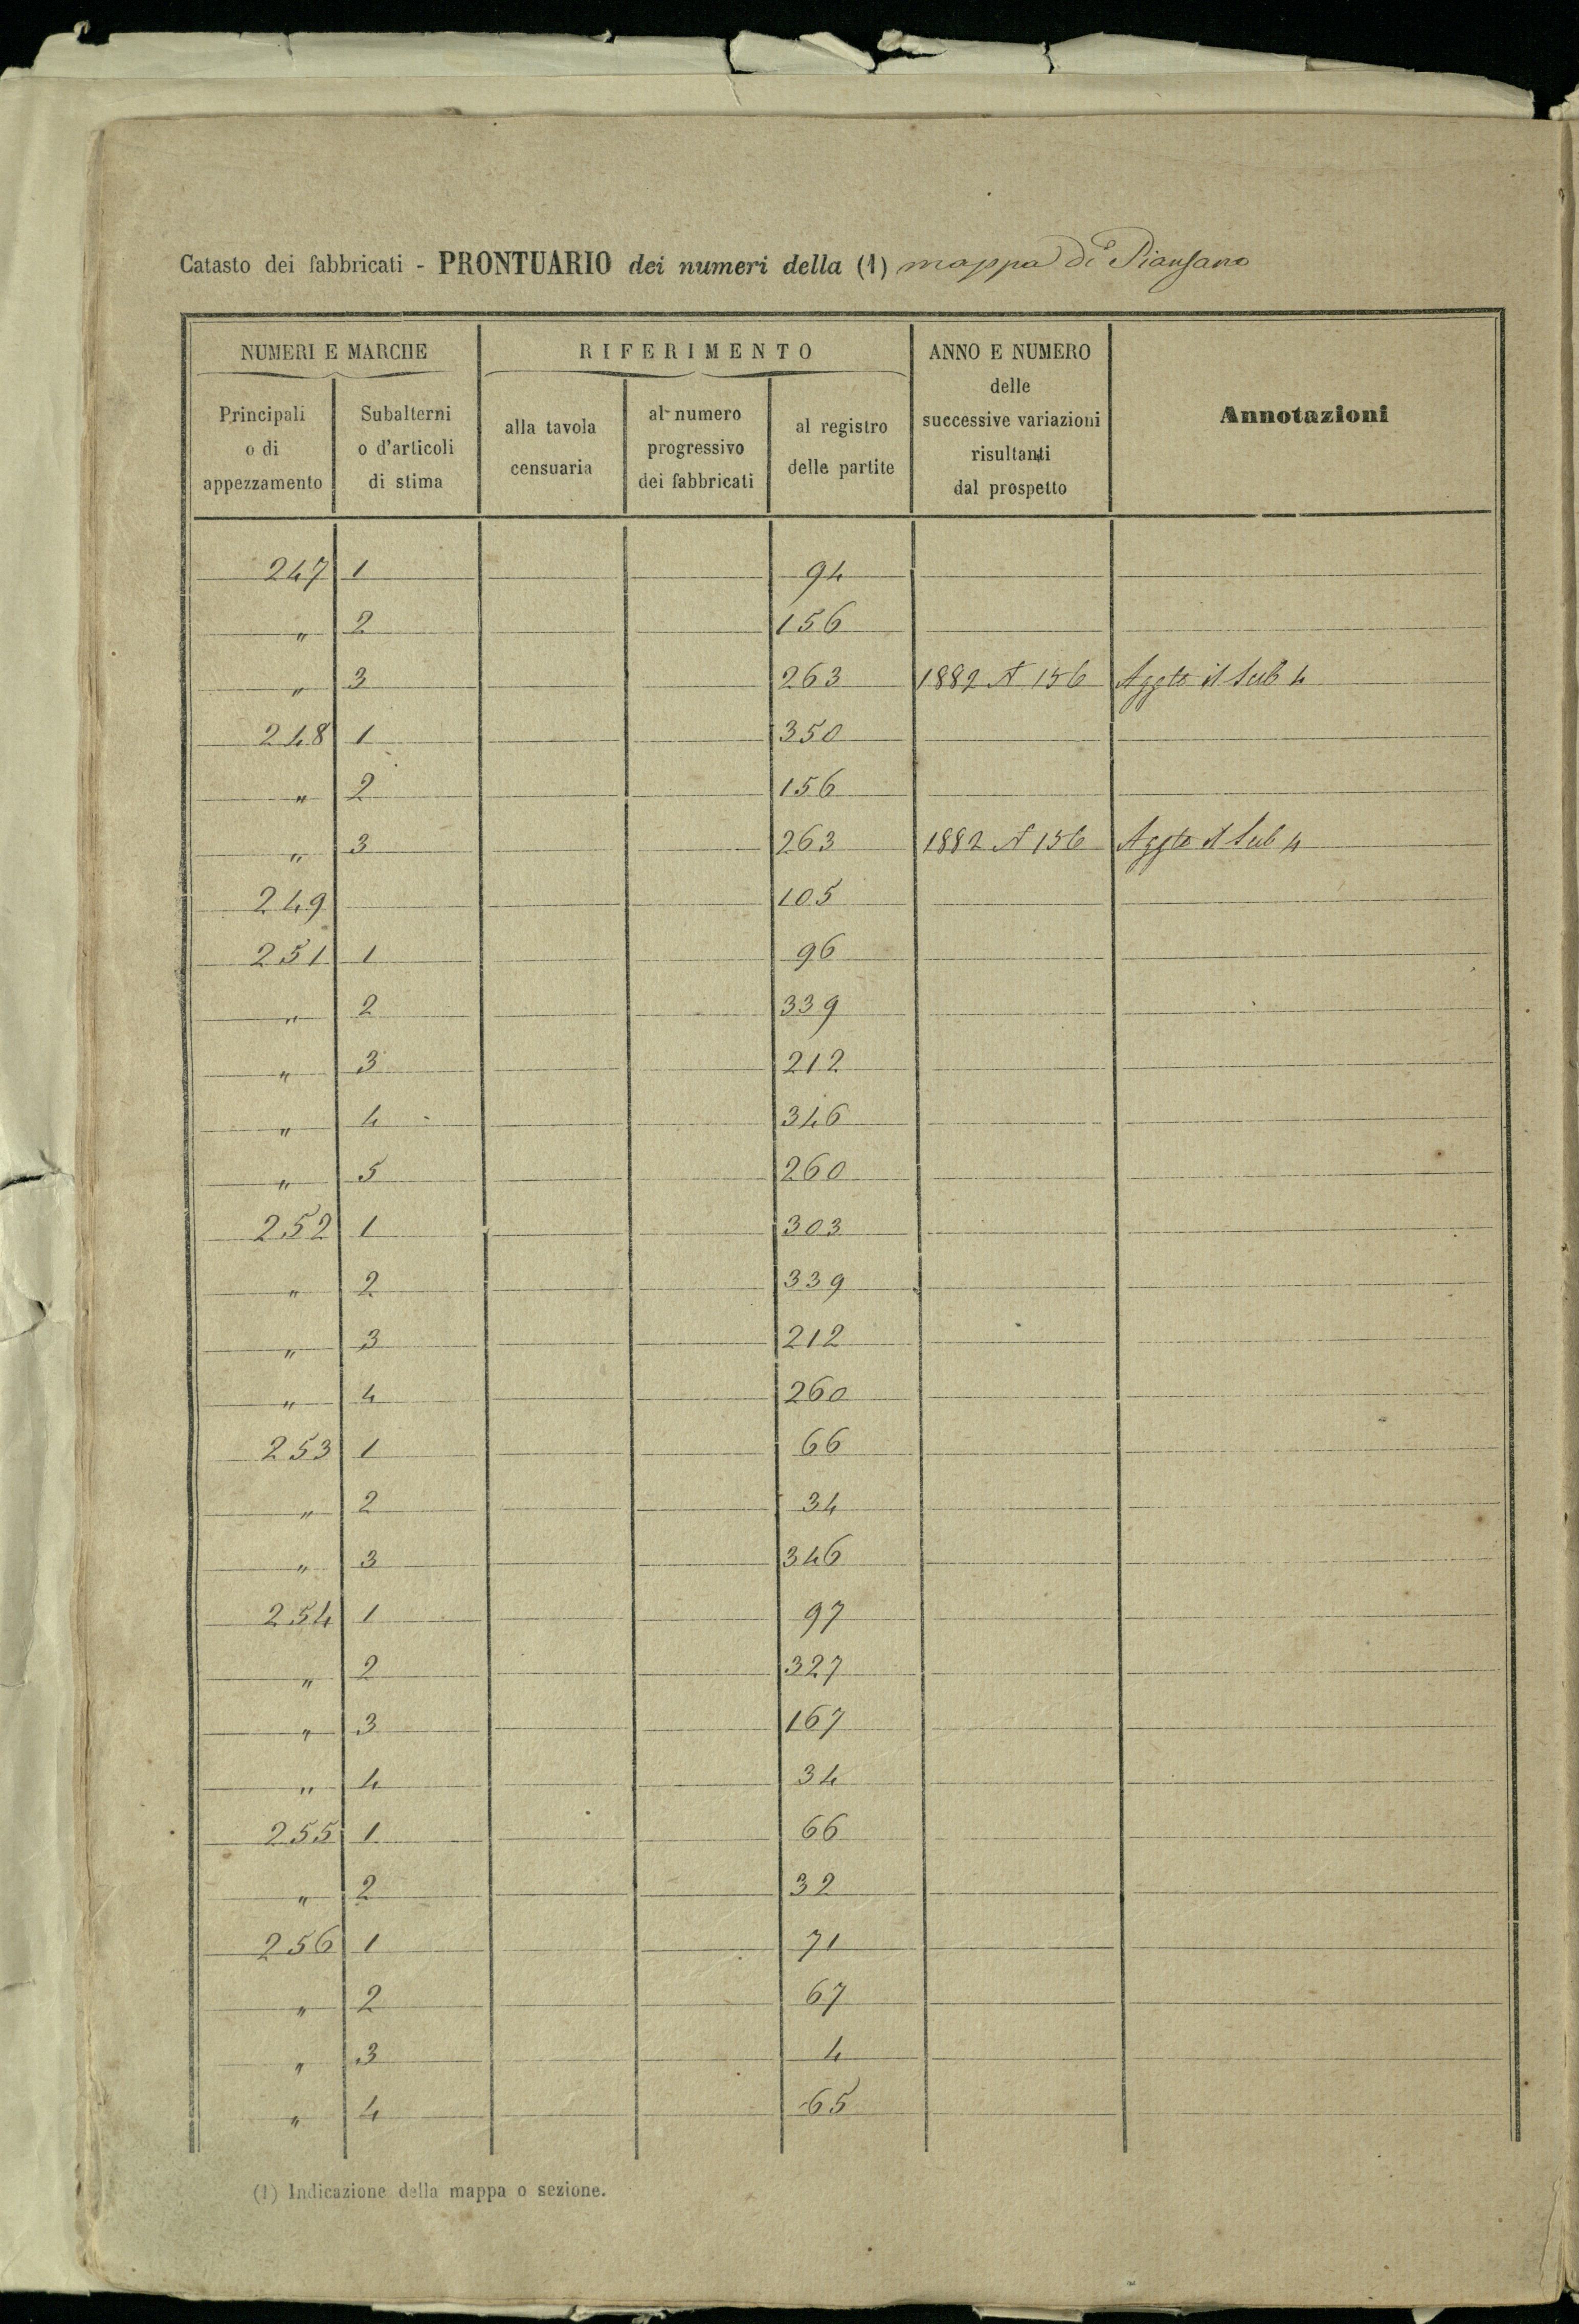 Catasto dei fabbricati - PRONTUARIO dei numeri della (1) mappa di Piansano
NUMERI E MARCHE
RIFERIMENTO
ANNO E NUMERO
delle
successive variazioni
risultanti
dal prospetto
Annotazioni
Principali
o di
appezzamento
Subalterni
o d'articoli
di stima
alla tavola
censuaria
al numero
progressivo
dei fabbricati
al registro
delle partite
247 1 94
" 2 156
" 3 263 1882 N 156 Aggto il Sub 4
248 1 350
" 2 156
" 3 263 1882 N 156 Aggto il Sub 4
249 105
251 1 96
" 2 339
" 3 212
" 4 346
" 5 260
252 1 303
" 2 339
" 3 212
" 4 260
253 1 66
" 2 34
" 3 346
254 1 97
" 2 327
" 3 167
" 4 34
255 1 66
" 2 32
256 1 71
" 2 67
" 3 4
" 4 65
(1) Indicazione della mappa o sezione.